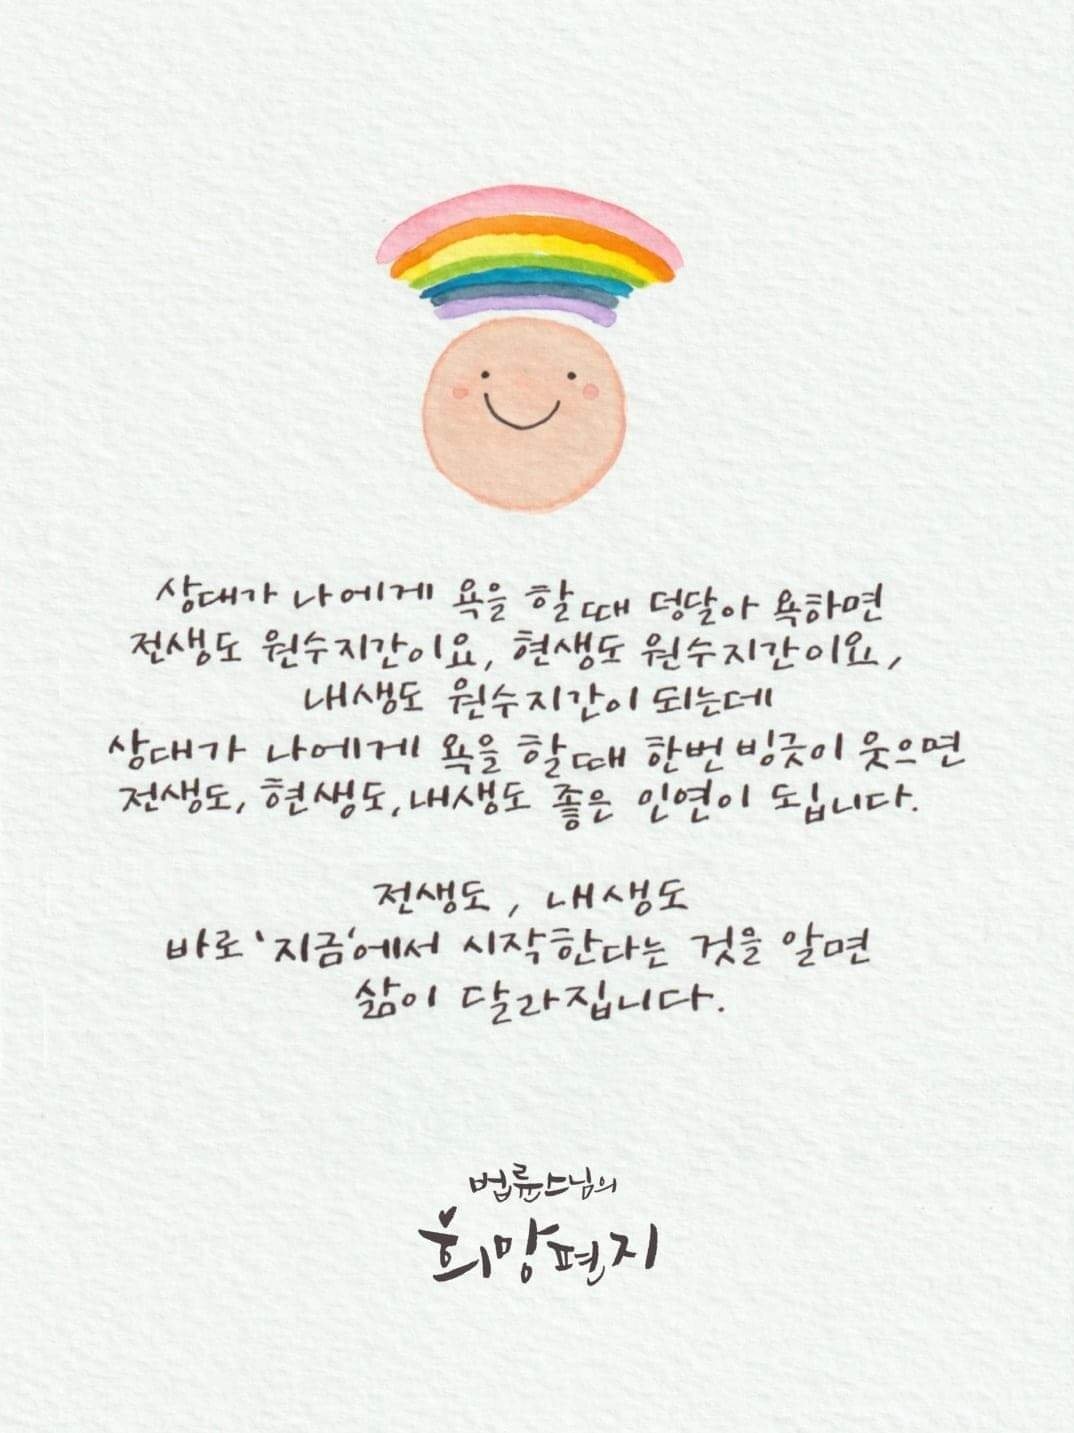 상대가 나에게 욕을 할 때 덩달아 욕하면
전생도 원수지간이요, 현생도 원수지간이요,
내생도 원수지간이 되는데
상대가 나에게 욕을 할 때 한번 빙긋이 웃으면
전생도, 현생도, 내생도 좋은 인연이 됩니다.
전생도, 내생도
바로 '지금'에서 시작한다는 것을 알면
삶이 달라집니다.
법륜스님의
희망편지